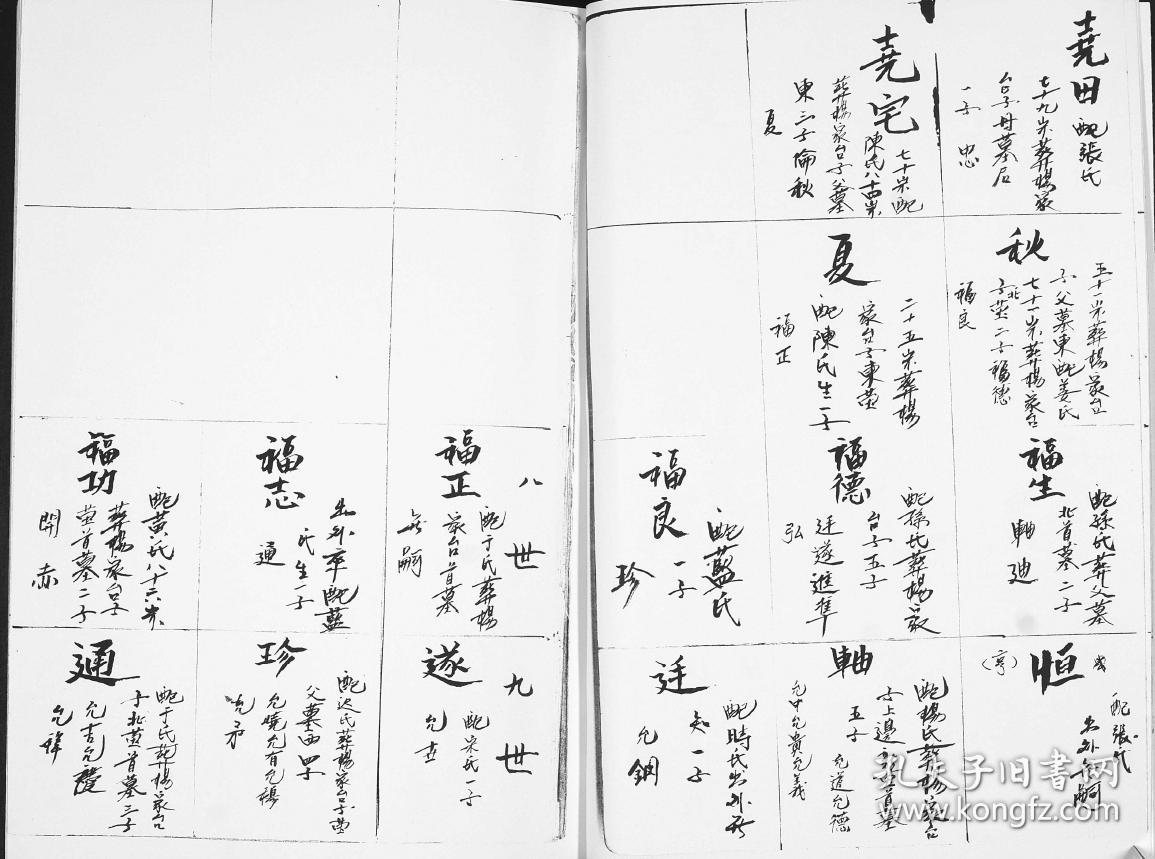 堯田
配張氏
七十九岁葬楊家
台子母墓后
一子 忠
堯宅
七十岁配
陳氏八十四岁
葬楊家台子父墓
東三子倫秋
夏
秋
五十一岁葬楊家台
子父墓東配姜氏
七十一岁葬楊家台
子北茔二子福德
福良
夏
二十五岁葬楊
家台子東茔
配陳氏生一子
福正
福生
配孫氏葬父墓
北首墓二子
軸迪
福德
配孫氏葬楊家
台子五子
廷遂進隼
弘
福良
配藍氏
一子
珍
恒
(亨)
配張氏
出外無嗣
軸
配楊氏葬楊家台
子上邊
首墓
五子
允道允德
允中允貴允義
廷
配時氏出外
一子
允鋼
八世
福正
配于氏葬楊
家台首墓
無嗣
福志
出外卒配藍
氏生一子
通
福功
配黃氏八十六岁
葬楊家台子
茔首墓二子
開赤
九世
遂
配宋氏一子
允
珍
配遲氏葬楊家台子茔
父墓西四子
允曉允有允楊
允矛
通
配于氏葬楊家台
子北茔首墓三子
允吉允慶
允祥
孔夫子旧書网
www.kongfz.com